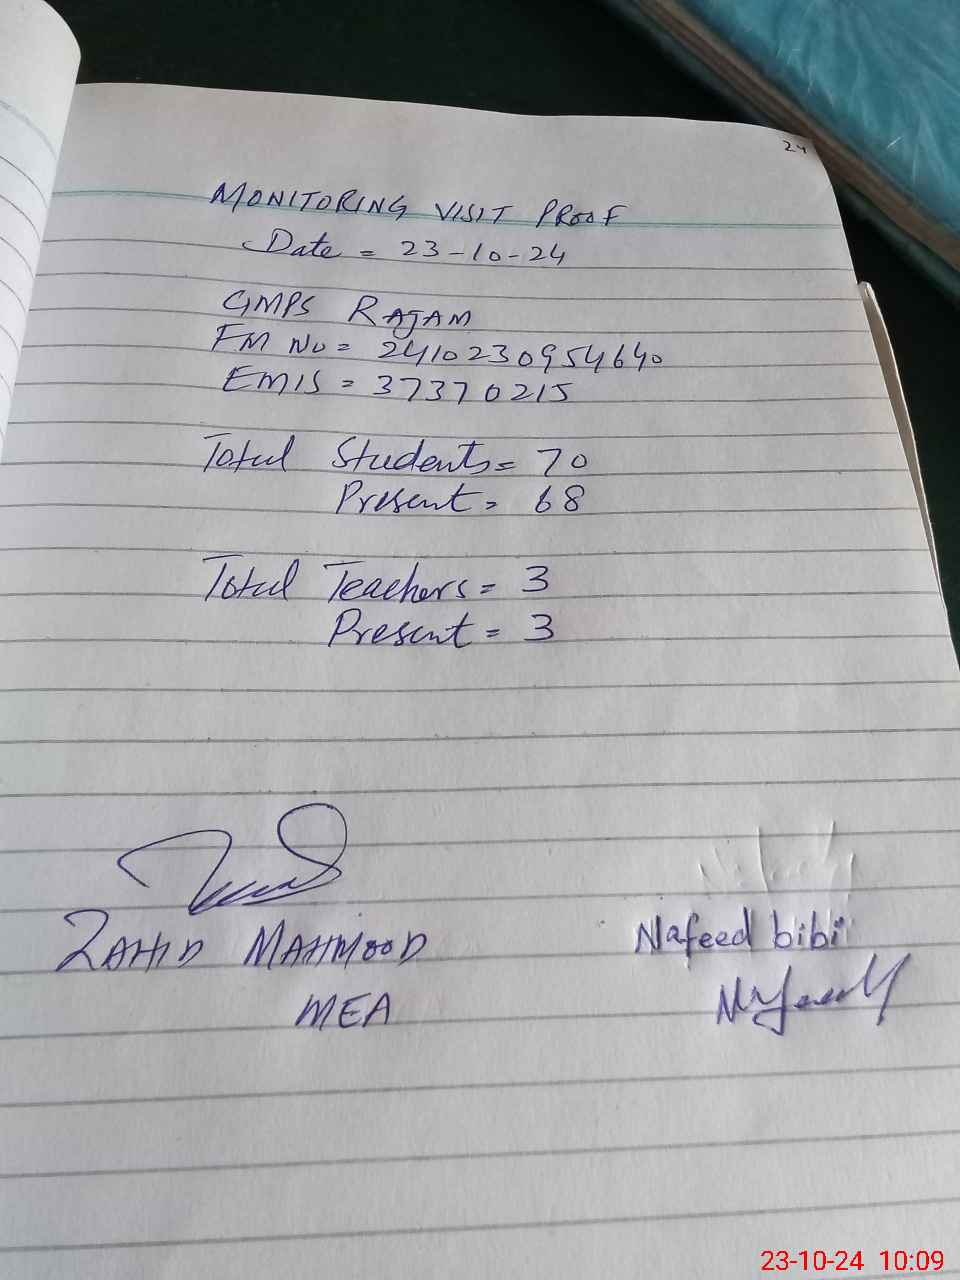 24
MONITORING VISIT PROOF
Date = 23-10-24
GMPS RAJAM
FM No = 2410230954640
EMIS = 37370215
Total Students = 70
Present = 68
Total Teachers = 3
Present = 3
ZAHID MAHMOOD
MEA
Nafeed bibi
23-10-24 10:09